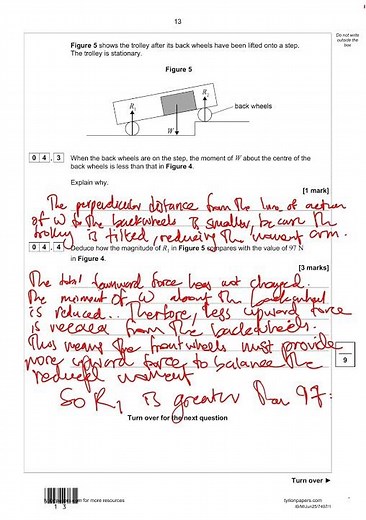 13
Do not write
outside the
box
Figure 5 shows the trolley after its back wheels have been lifted onto a step.
The trolley is stationary.
Figure 5
R1
R2
W
back wheels
0 4 . 3 When the back wheels are on the step, the moment of W about the centre of the
back wheels is less than that in Figure 4.
Explain why.
[1 mark]
The perpendicular distance from the line of action
of W to the backwheels is smaller, because the
trolley is tilted, reducing the moment arm.
0 4 . 4 Deduce how the magnitude of R1 in Figure 5 compares with the value of 97 N
in Figure 4.
[3 marks]
The total downward force has not changed.
The moment of W about the backwheel
is reduced. Therefore, less upward force
is needed from the backwheels.
This means the frontwheels must provide
more upward force to balance the
reduced moment
So R1 is greater than 97.
9
Turn over for the next question
Turn over ►
for more resources
tylionpapers.com
IB/M/Jun25/7407/1
1 3